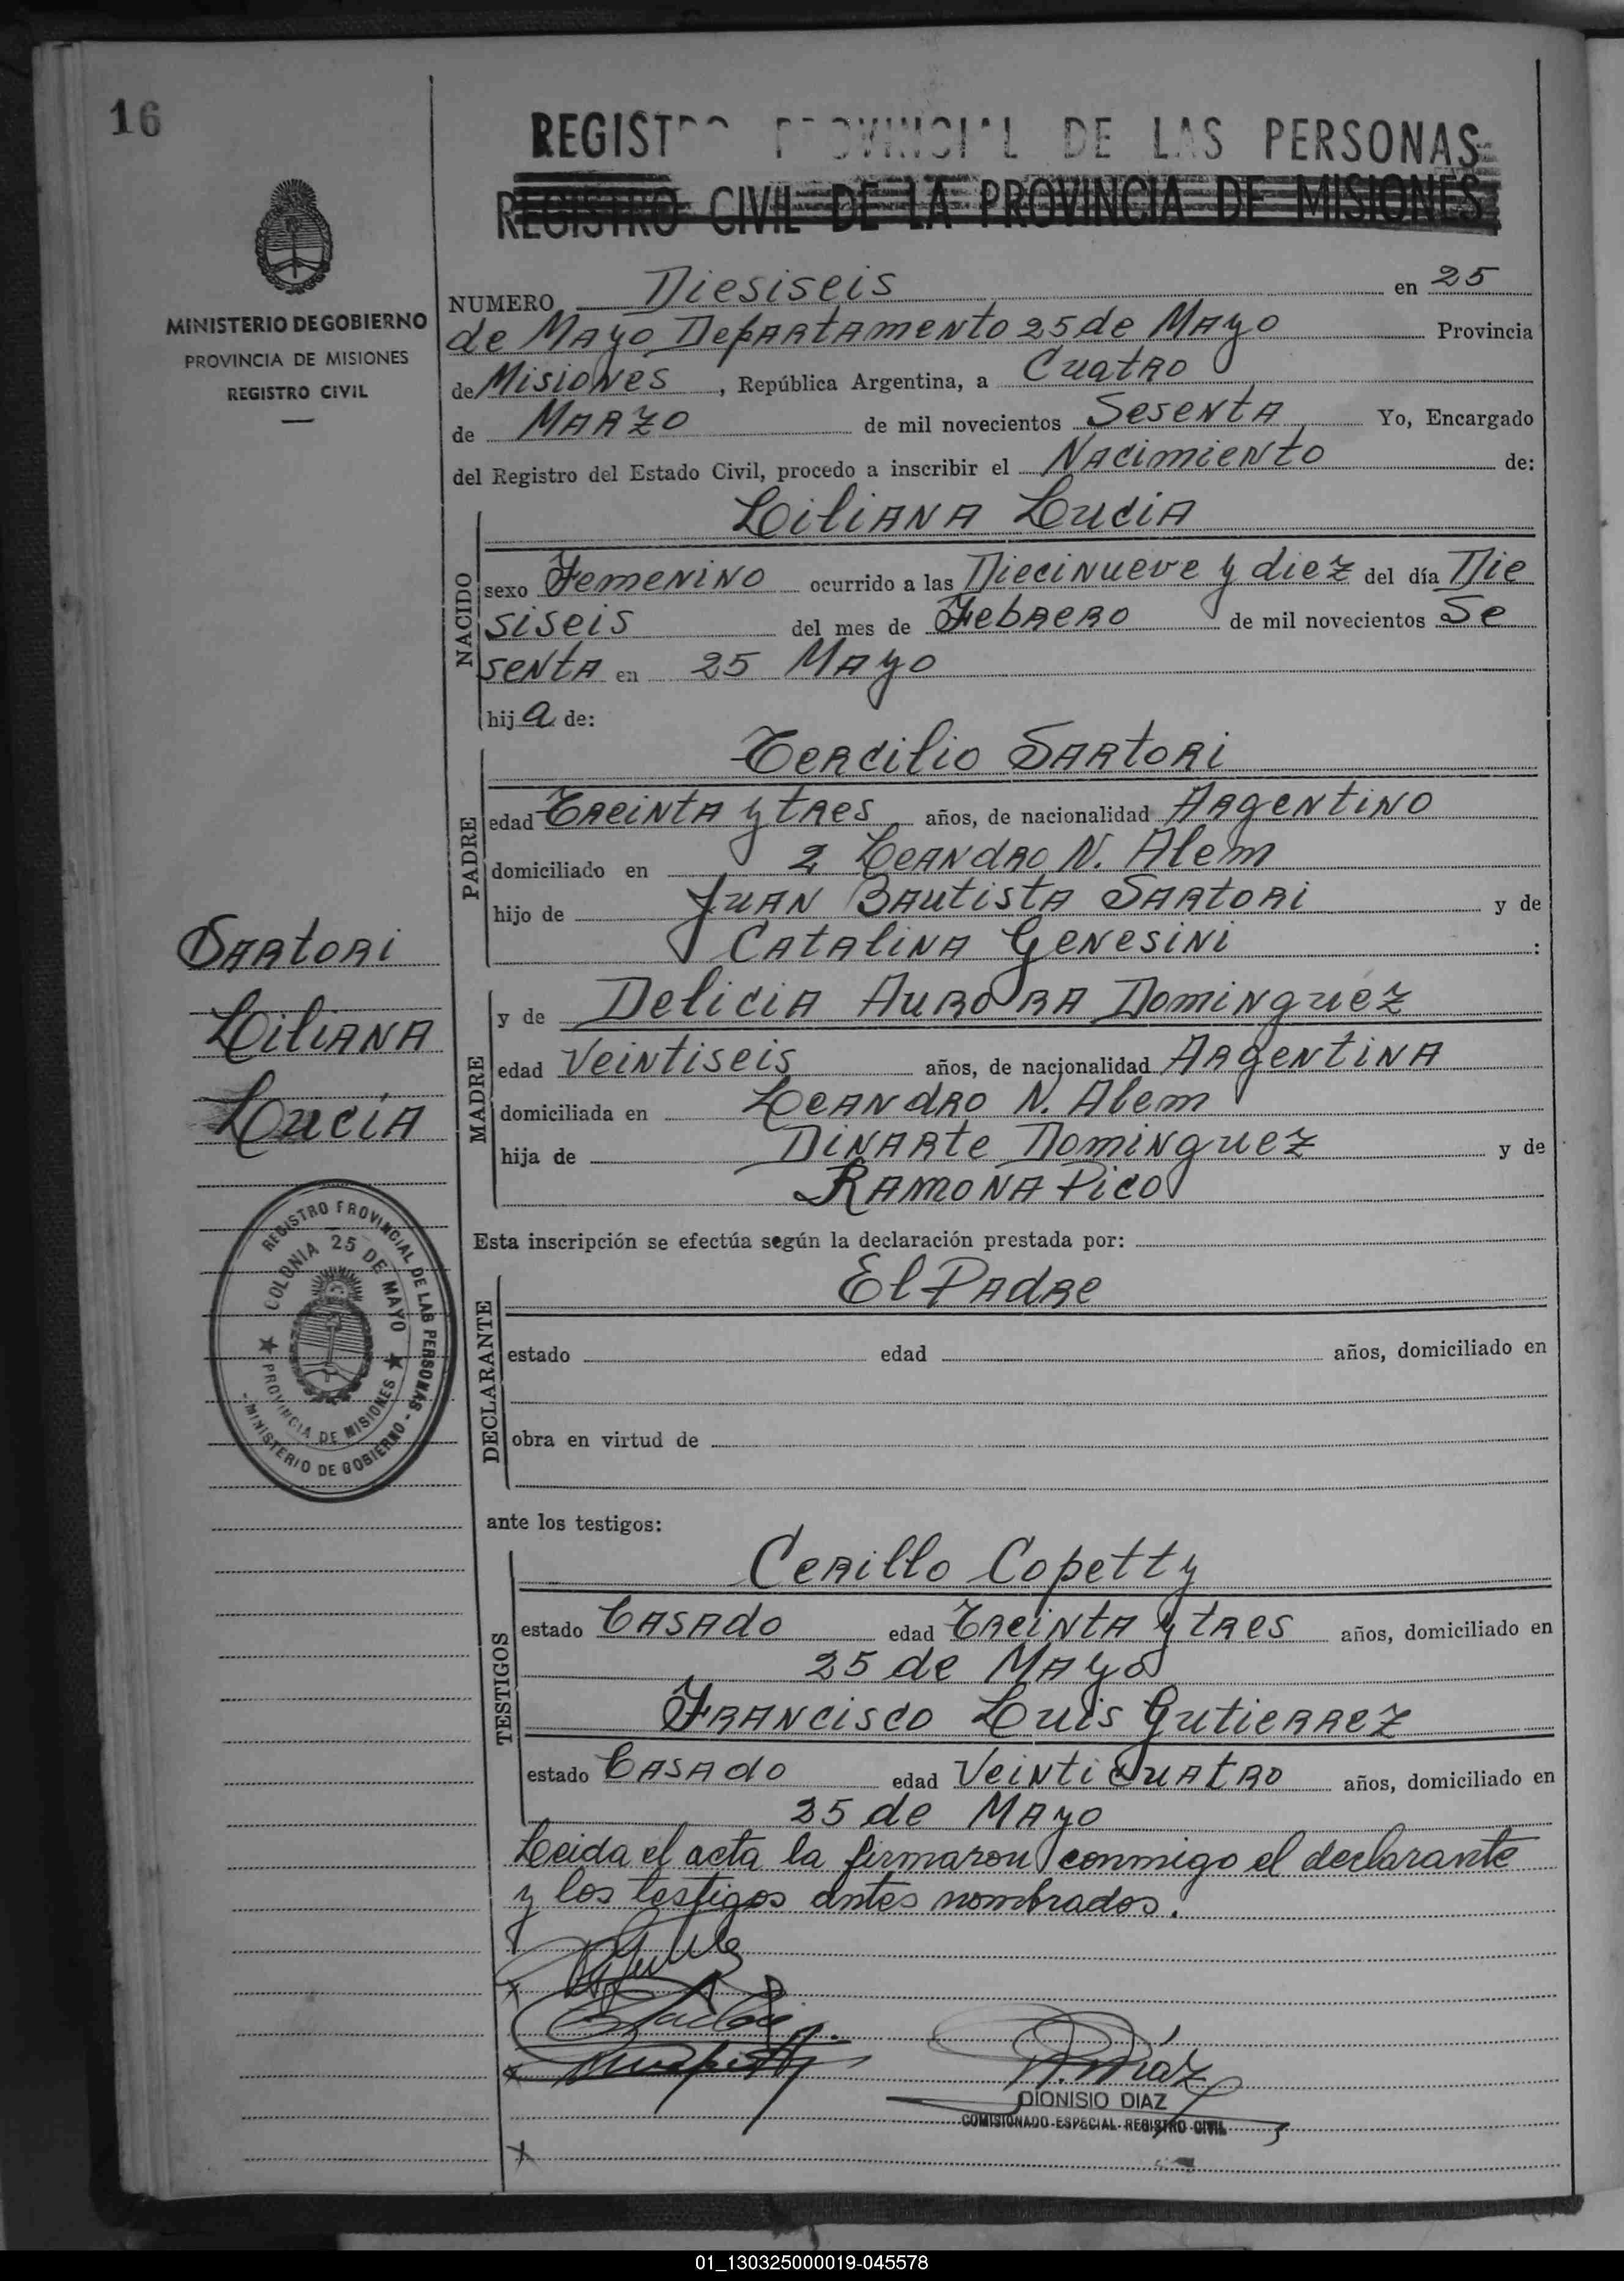 16
REGISTRO PROVINCIAL DE LAS PERSONAS
REGISTRO CIVIL DE LA PROVINCIA DE MISIONES
MINISTERIO DE GOBIERNO
PROVINCIA DE MISIONES
REGISTRO CIVIL
NUMERO Diesiseis en 25
de Mayo Departamento 25 de Mayo Provincia
de Misiones, República Argentina, a Cuatro
de Marzo de mil novecientos Sesenta Yo, Encargado
del Registro del Estado Civil, procedo a inscribir el Nacimiento de:
NACIDO
Liliana Lucia
sexo Femenino ocurrido a las Diecinueve y diez del día Die
siseis del mes de Febrero de mil novecientos Se
senta en 25 Mayo
hija de:
PADRE
Tercilio Sartori
edad Treinta y tres años, de nacionalidad Argentino
domiciliado en 2 Leandro N. Alem
hijo de Juan Bautista Sartori y de
Catalina Genesini :
Sartori
Liliana
Lucia
MADRE
y de Delicia Aurora Dominguez
edad Veintiseis años, de nacionalidad Argentina
domiciliada en Leandro N. Alem
hija de Dinarte Dominguez y de
Ramona Pico
REGISTRO PROVINCIAL DE LAS PERSONAS - MINISTERIO DE GOBIERNO -
COLONIA 25 DE MAYO
PROVINCIA DE MISIONES
Esta inscripción se efectúa según la declaración prestada por:
DECLARANTE
El Padre
estado edad años, domiciliado en
obra en virtud de
ante los testigos:
TESTIGOS
Cerillo Copetty
estado Casado edad Treinta y tres años, domiciliado en
25 de Mayo
Francisco Luis Gutierrez
estado Casado edad Veinticuatro años, domiciliado en
25 de Mayo
Leida el acta la firmaron conmigo el declarante
y los testigos antes nombrados.
D. Diaz
DIONISIO DIAZ
COMISIONADO ESPECIAL - REGISTRO CIVIL
01_130325000019-045578